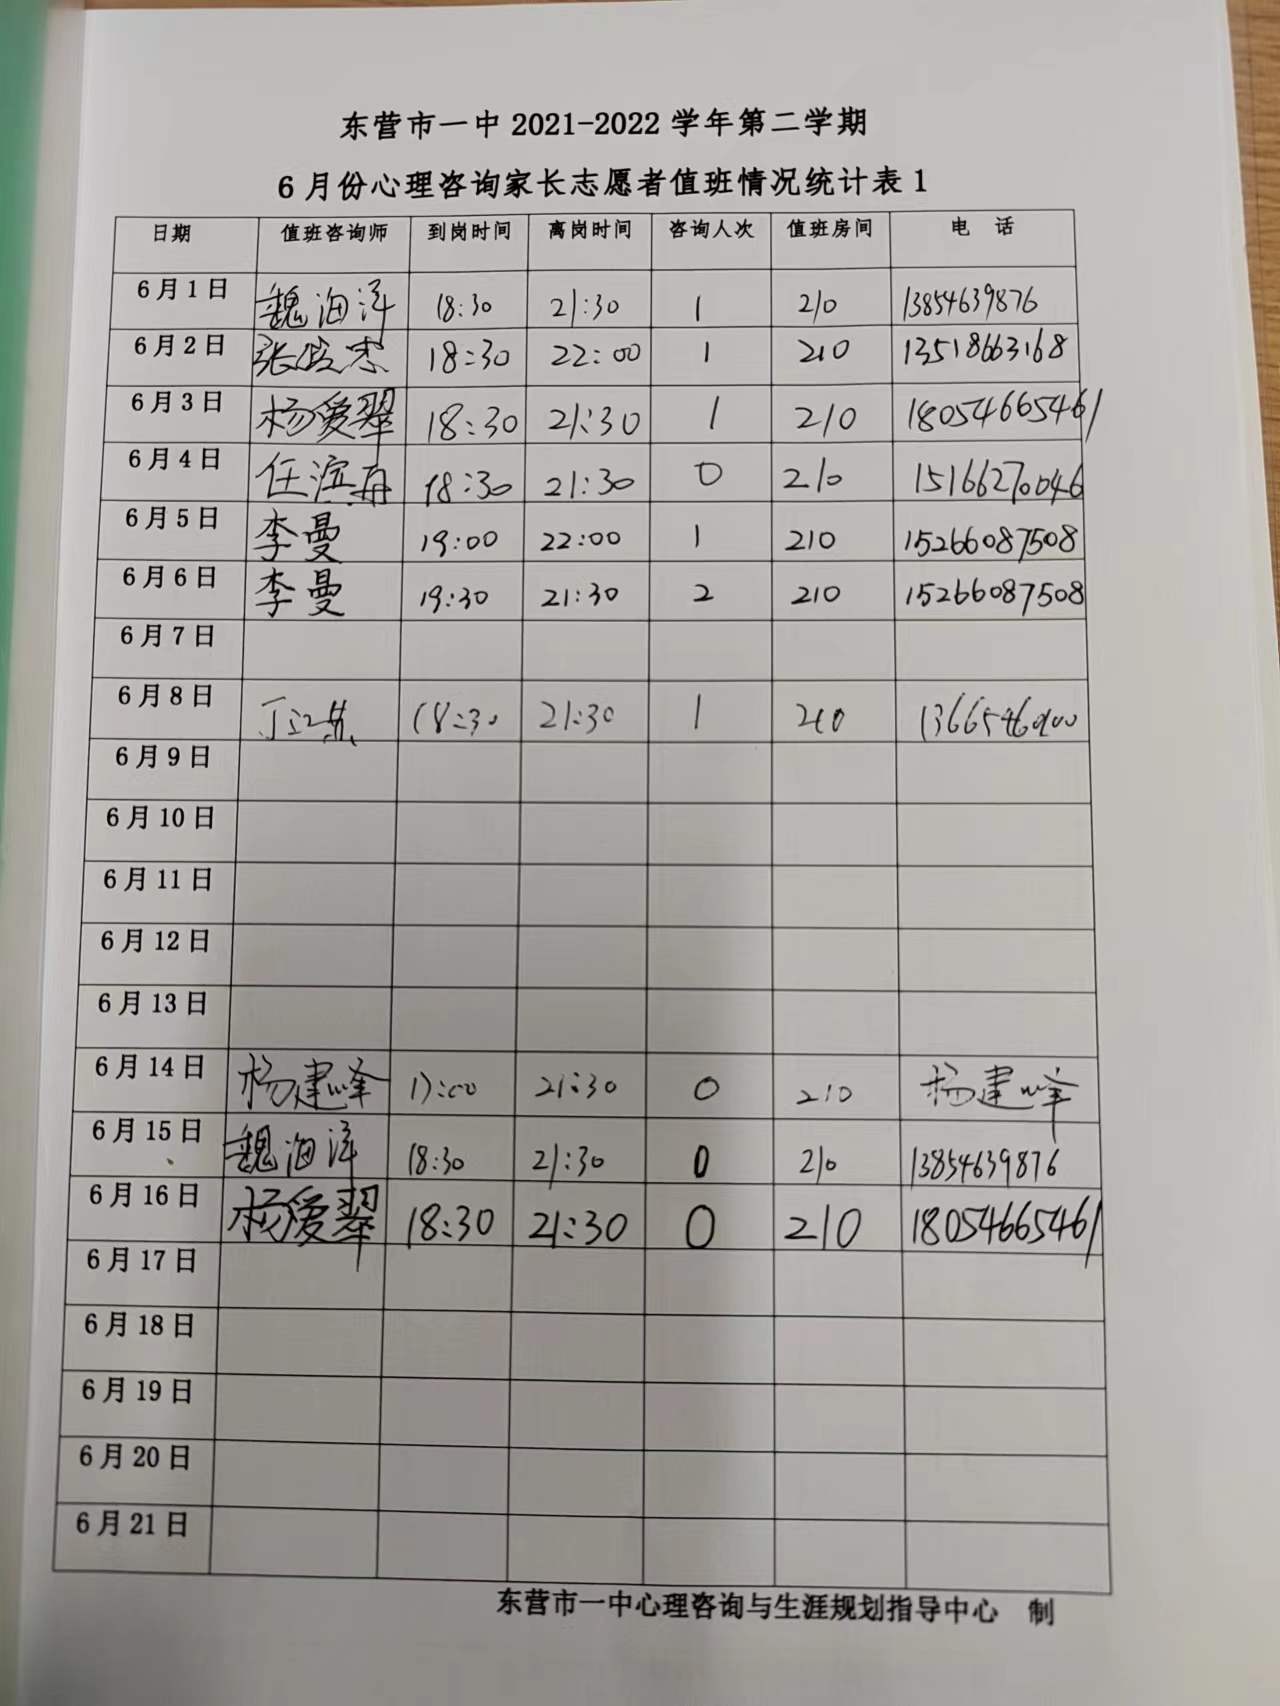 东营市一中 2021-2022 学年第二学期
6 月份心理咨询家长志愿者值班情况统计表 1
日期 值班咨询师 到岗时间 离岗时间 咨询人次 值班房间 电 话
6 月 1 日 魏海洋 18:30 21:30 1 210 13854639876
6 月 2 日 张 18:30 22:00 1 210 13518663168
6 月 3 日 杨爱翠 18:30 21:30 1 210 18054665461
6 月 4 日 任滨 18:30 21:30 0 210 15166270046
6 月 5 日 李曼 19:00 22:00 1 210 15266087508
6 月 6 日 李曼 19:30 21:30 2 210 15266087508
6 月 7 日
6 月 8 日 18:30 21:30 1 210
6 月 9 日
6 月 10 日
6 月 11 日
6 月 12 日
6 月 13 日
6 月 14 日 杨建峰 17:00 21:30 0 210 杨建峰
6 月 15 日 魏海洋 18:30 21:30 0 210 13854639876
6 月 16 日 杨爱翠 18:30 21:30 0 210 18054665461
6 月 17 日
6 月 18 日
6 月 19 日
6 月 20 日
6 月 21 日
东营市一中心理咨询与生涯规划指导中心 制